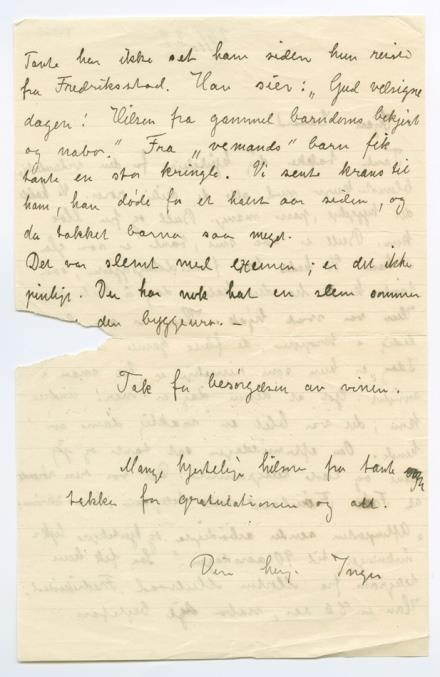 Tante har ikke set ham siden hun reiste
fra Fredriksstad. Han sier: „Gud velsigne
dagen! Hilsen fra gammel barndoms bekjent
og nabo." Fra „vemands" barn fik
tante en stor kringle. Vi sente krans til
ham, han døde for et halvt aar siden, og
da takket barna saa meget.
Det var slemt med exemen; er det ikke
pinligt. Du har nok hat en slem sommer
den byggeura. –
Tak for besørgelsen av vinen.
Mange hjertelige hilsner fra tante og
takker for gratulationen og alt.
Din heng. Inga